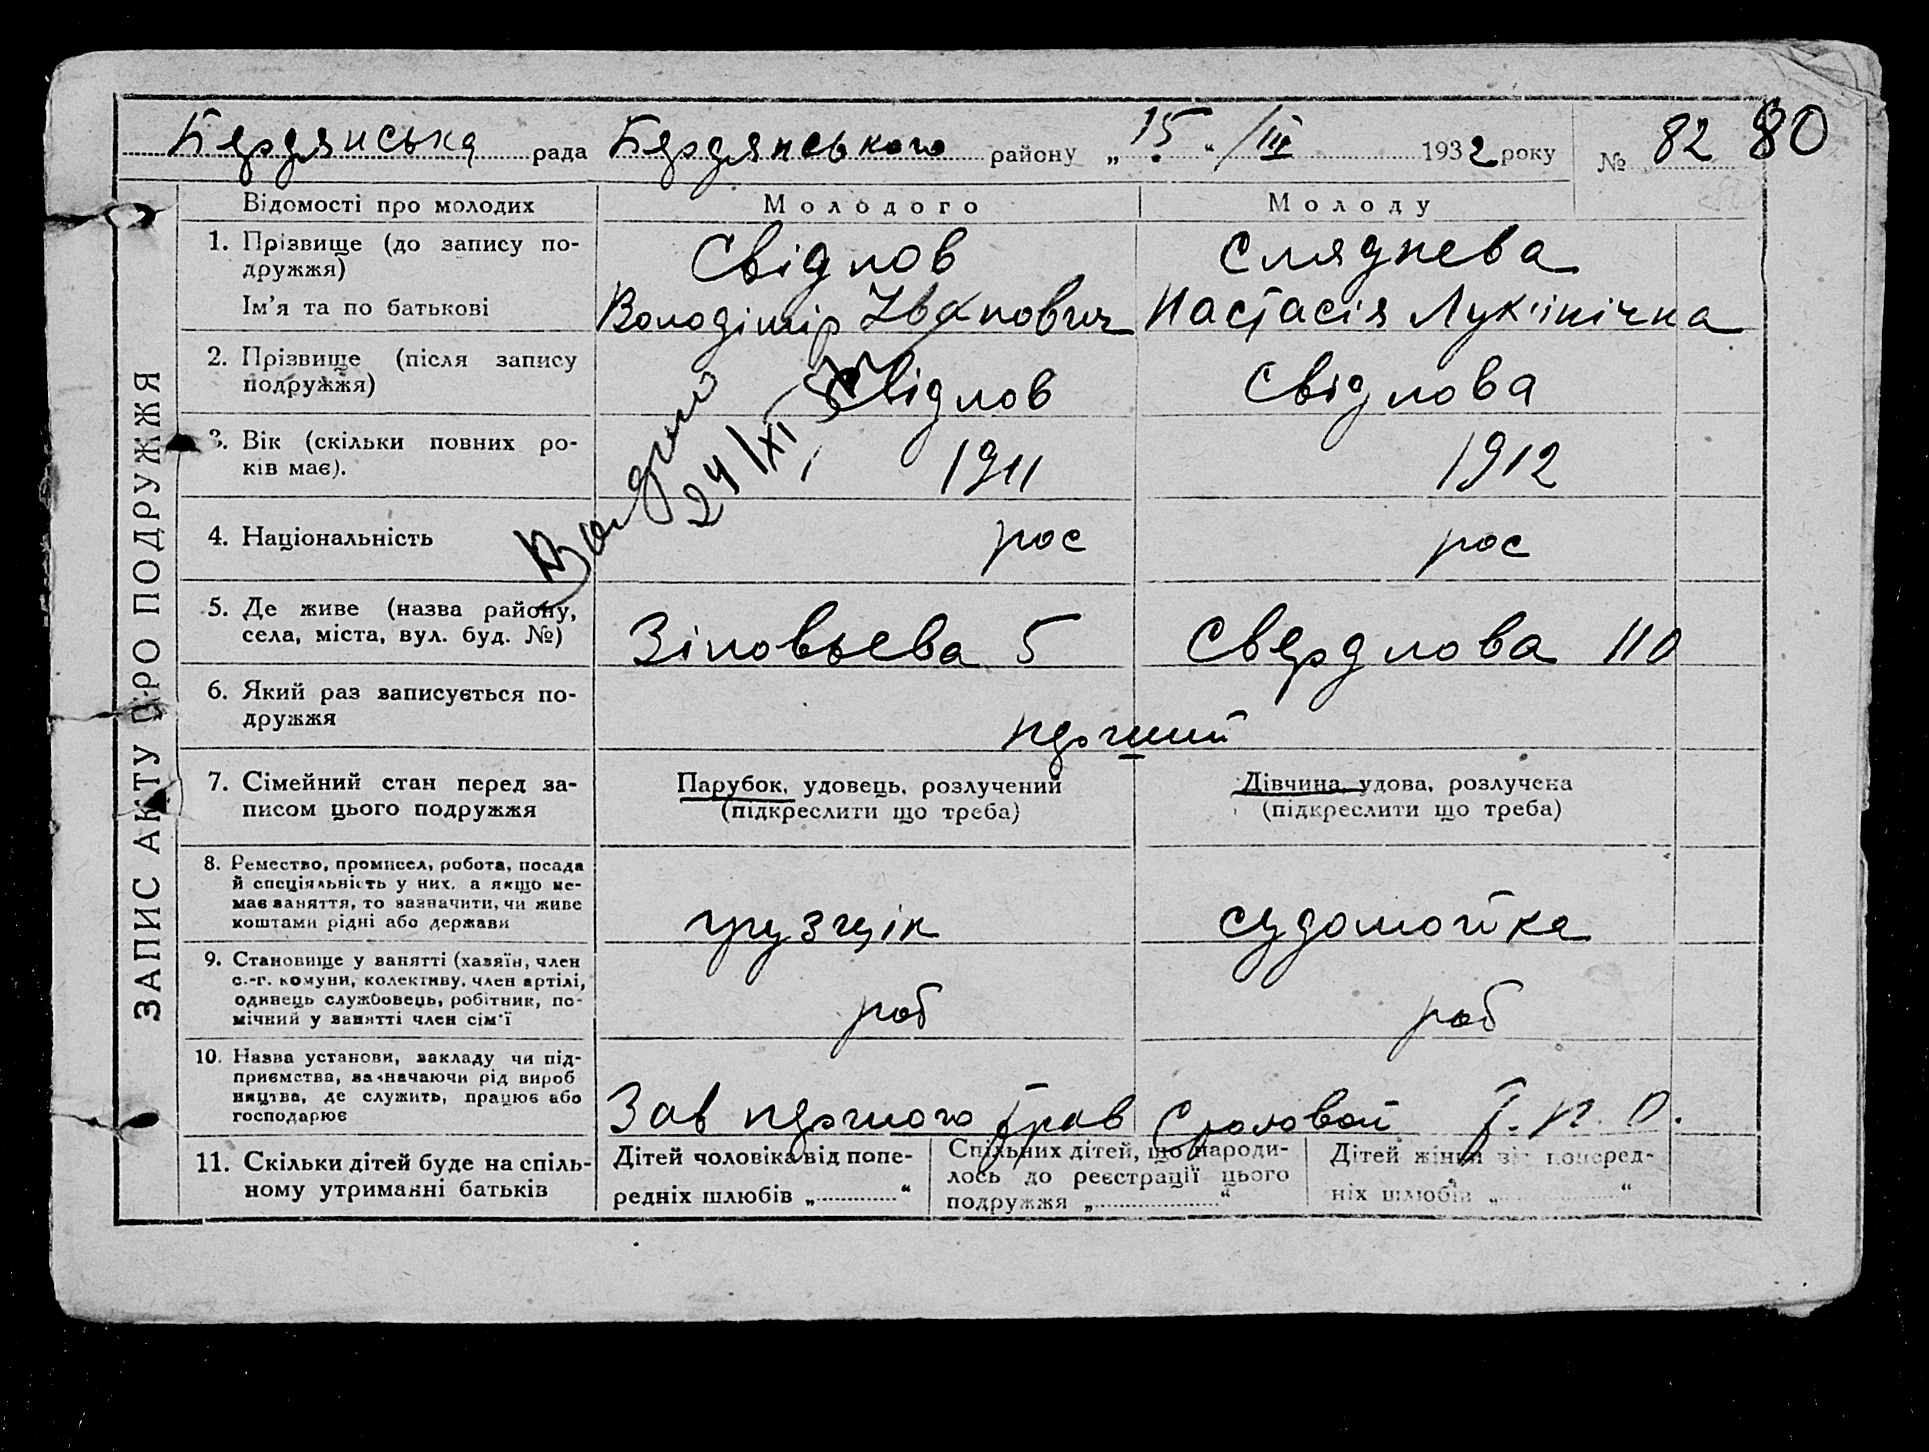 Бердянська рада Бердянського району „15“ /III 1932 року № 82 80
ЗАПИС АКТУ ПРО ПОДРУЖЖЯ
Відомості про молодих
Молодого
Молоду
1. Прізвище (до запису по-
дружжя)
Свідлов
Сляднева
Ім’я та по батькові
Володімір Іванович
Настасія Лук'інічна
2. Прізвище (після запису
подружжя)
Свідлов
Свідлова
3. Вік (скільки повних ро-
ків має).
1911
1912
24/XI
4. Національність
рос
рос
5. Де живе (назва району,
села, міста, вул. буд. №)
Зіновьева 5
Свердлова 110
6. Який раз записується по-
дружжя
перший
7. Сімейний стан перед за-
писом цього подружжя
Парубок, удовець, розлучений
(підкреслити що треба)
Дівчина, удова, розлучена
(підкреслити що треба)
8. Ремество, промисел, робота, посада
й спеціяльність у них, а якщо не-
має заняття, то зазначити, чи живе
коштами рідні або держави
грузчік
судомойка
9. Становище у занятті (хазяїн, член
с.-г. комуни, колективу, член артілі,
одинець службовець, робітник, по-
мічний у занятті член сім’ї
роб
роб
10. Назва установи, закладу чи під-
приємства, зазначаючи рід вироб
ництва, де служить, працює або
господарює
Зав першого трав
Столовой Т.П.О.
11. Скільки дітей буде на спіль-
ному утриманні батьків
Дітей чоловіка від попе-
редніх шлюбів „ “
Спільних дітей, що народи-
лось до реєстрації цього
подружжя „ “
Дітей жінки від поперед-
ніх шлюбів „ “